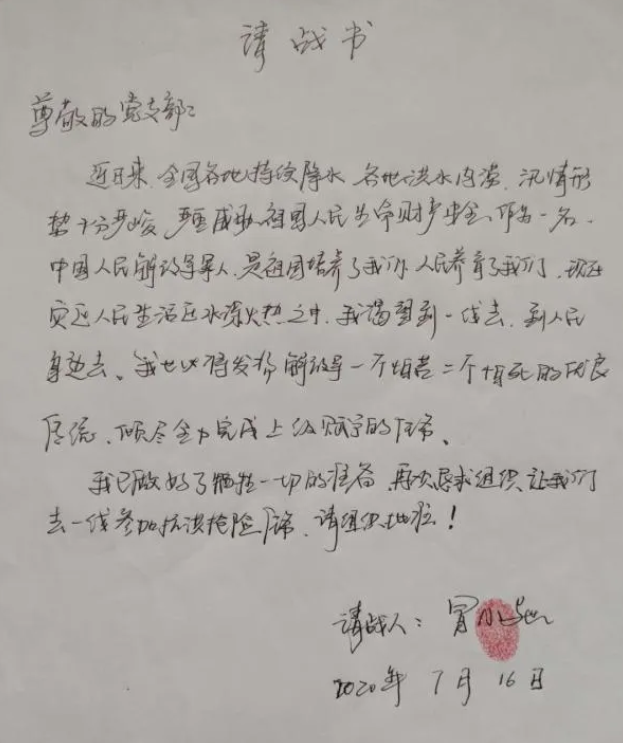 请战书
尊敬的党支部：
近日来，全国各地持续降水，各地洪水内涝，汛情形
势十分严峻，严重威胁祖国人民生命财产安全，作为一名
中国人民解放军军人，是祖国培养了我们，人民养育了我们，现在
灾区人民生活在水深火热之中，我渴望到一线去，到人民
身边去、我也必将发扬解放军一不怕苦二不怕死的优良
传统、倾尽全力完成上级赋予的任务、
我已做好了牺牲一切的准备，再次恳求组织让我们
去一线参加抗洪抢险任务，请组织批准！
请战人：
2020年7月16日